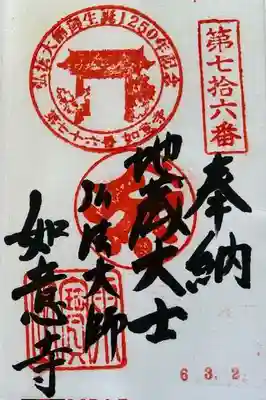 第七拾六番
弘法大師御生誕1250年記念
第七十六番 如意寺
奉納
地蔵大士
弘法大師
如意寺
6.3.2.